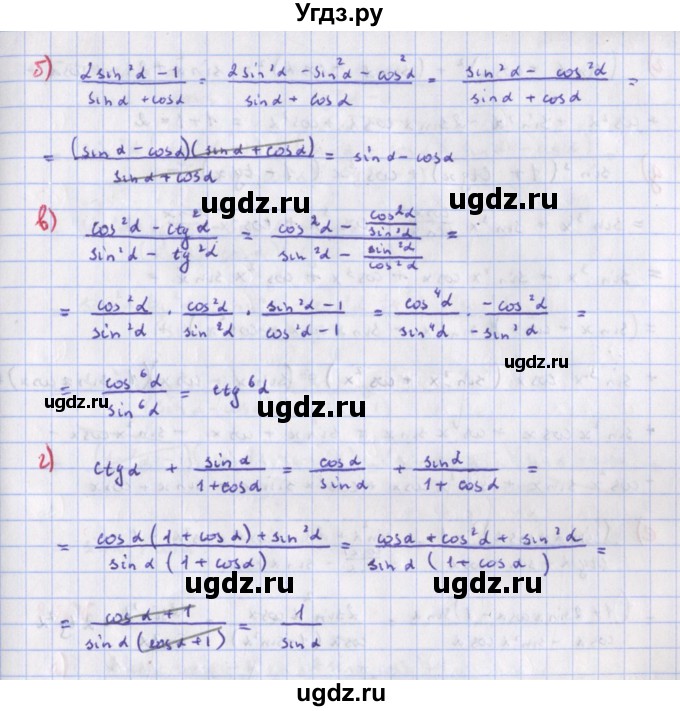 Угдз.ру
б) (2sin²α − 1)/(sinα + cosα) = (2sin²α − sin²α − cos²α)/(sinα + cosα) = (sin²α − cos²α)/(sinα + cosα) =
= ((sinα − cosα)(sinα + cosα))/(sinα + cosα) = sinα − cosα
ugdz.ru
в) (cos²α − ctg²α)/(sin²α − tg²α) = (cos²α − cos²α/sin²α)/(sin²α − sin²α/cos²α) =
ugdz.ru ugdz.ru
= cos²α/sin²α · cos²α/sin²α · (sin²α − 1)/(cos²α − 1) = cos⁴α/sin⁴α · (−cos²α)/(−sin²α) =
ugdz.ru
= cos⁶α/sin⁶α = ctg⁶α
ugdz.ru ugdz.ru
г) ctgα + sinα/(1 + cosα) = cosα/sinα + sinα/(1 + cosα) =
ugdz.ru
= (cosα(1 + cosα) + sin²α)/(sinα(1 + cosα)) = (cosα + cos²α + sin²α)/(sinα(1 + cosα)) =
ugdz.ru ugdz.ru
= (cosα + 1)/(sinα(cosα + 1)) = 1/sinα
ugdz.ru
ugdz.ru